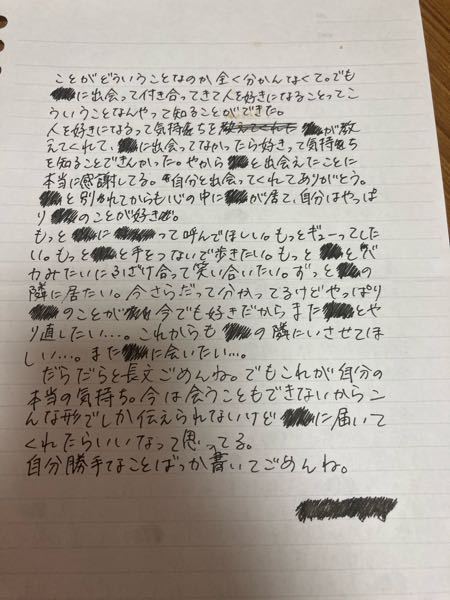 ことがどういうことなのか全く分かんなくて。でも
に出会って付き合ってきて人を好きになることってこ
ういうことなんやって知ることができた。
人を好きになるって気持ちを が教
えてくれて、 に出会ってなかったら好きって気持ち
を知ることできんかった。やから と出会えたことに
本当に感謝してる。自分と出会ってくれてありがとう。
と別れてからも心の中に が居て、自分はやっぱ
り のことが好き。
もっと に って呼んでほしい。もっとギューってした
い。もっと と手をつないで歩きたい。もっと とバ
カみたいにふざけ合って笑い合いたい。ずっと の
隣に居たい。今さらだって分かってるけどやっぱり
のことが 今でも好きだからまた とや
り直したい…。これからも の隣にいさせてほ
しい…。また に会いたい…。
だらだらと長文ごめんね。でもこれが自分の
本当の気持ち。今は会うこともできないからこ
んな形でしか伝えられないけど に届いて
くれたらいいなって思ってる。
自分勝手なことばっか書いてごめんね。